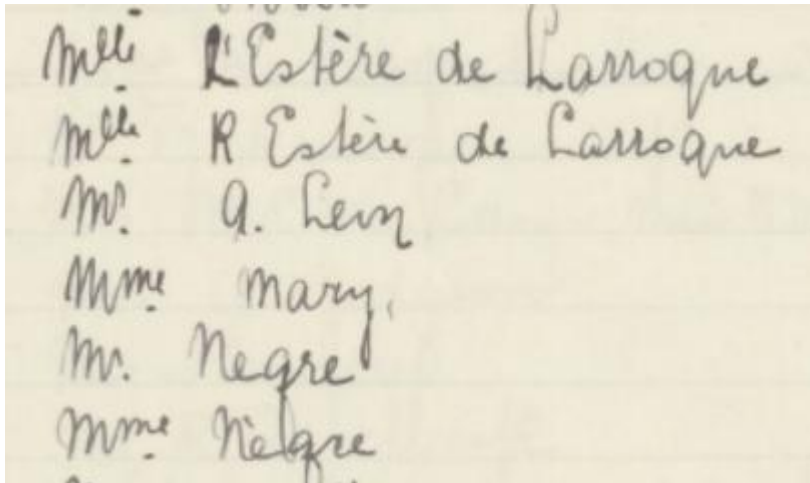 Mlle L'Estère de Larroque
Mlle R Estère de Larroque
Mr. A.
Mme Mary.
Mr. Negre
Mme Nègre